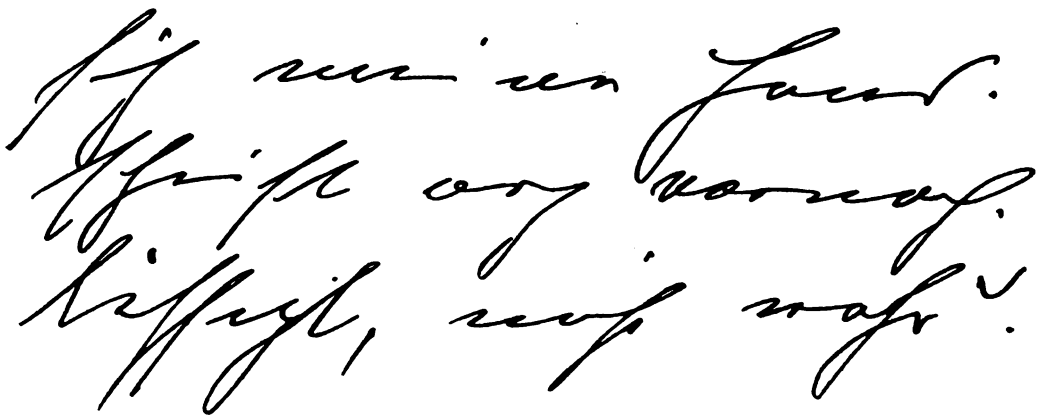 meine Hand.
schrift arg vernach.
lässigt, nicht wahr?